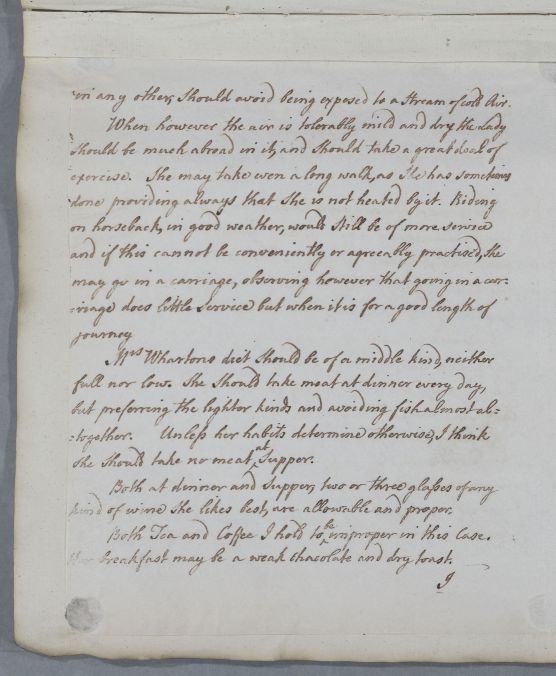 in any other, should avoid being exposed to a stream of cold Air.
When however the air is tolerably mild and dry the Lady
should be much abroad in it, and should take a great deal of
exercise. She may take even a long walk, as she has sometimes
done providing always that she is not heated by it. Riding
on horseback, in good weather, would still be of more service
and if this cannot be conveniently or agreeably practised, she
may go in a carriage, observing however that going in a car=
=riage does little service but when it is for a good length of
journey
Mrs Whartons diet should be of a middle kind, neither
full nor low. She should take meat at dinner every day,
but preferring the lighter kinds and avoiding fish almost al=
=together. Unless her habits determine otherwise, I think
she should take no meat at Supper.
Both at dinner and Supper, two or three glasses of any
kind of wine she likes best, are allowable and proper.
Both Tea and Coffee I hold to be improper in this Case.
Her breakfast may be a weak chacolate and dry toast.
I